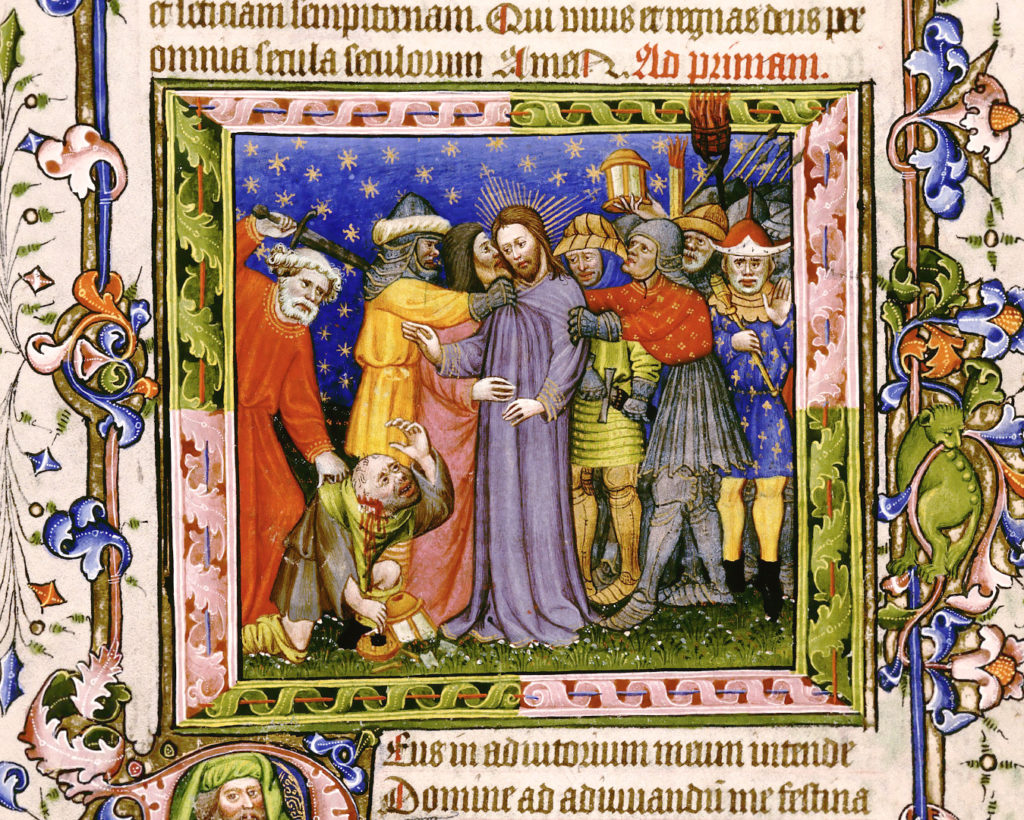 et leticiam sempiternam. Qui viuis et regnas deus per
omnia secula seculorum Amen. Ad primam.
Eus in adiutorium meum intende
Domine ad adiuuandū me festina